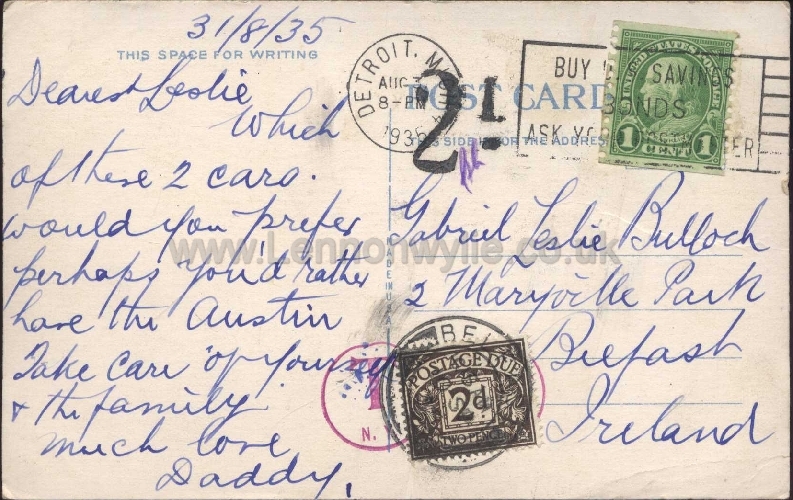 31/8/35
THIS SPACE FOR WRITING
Dearest Leslie
Which
of these 2 cars.
would you prefer
perhaps you'd rather
have the Austin
Take care of yourself
& the family
much love
Daddy.
DETROIT, MICH
AUG 31
8-PM
1935
2d.
POST CARD
THIS SIDE IS FOR THE ADDRESS
BUY U.S. SAVINGS
BONDS
ASK YOUR POSTMASTER
UNITED STATES POSTAGE
1 CENT 1
Gabriel Leslie Bulloch
2 Maryville Park
Belfast
Ireland
MADE IN U.S.A.
www.Lennonwylie.co.uk
T
N.Y.
BEL
POSTAGE DUE
2d
TWO PENCE